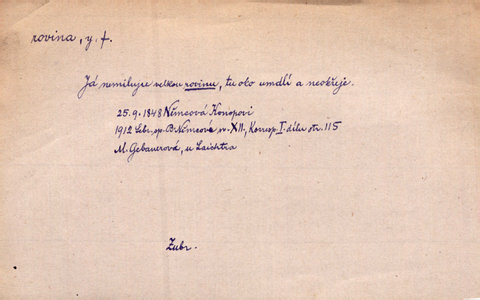 rovina, y, f.
Já nemiluju velkou rovinu, tu oko umdlí a neokřeje.
25. 9. 1848 Němcová Konopovi
1912 Sebr. sp. B. Němcové sv. XII., Koresp. I. dílu str. 115
M. Gebauerová, u Laichtra
Zubr.